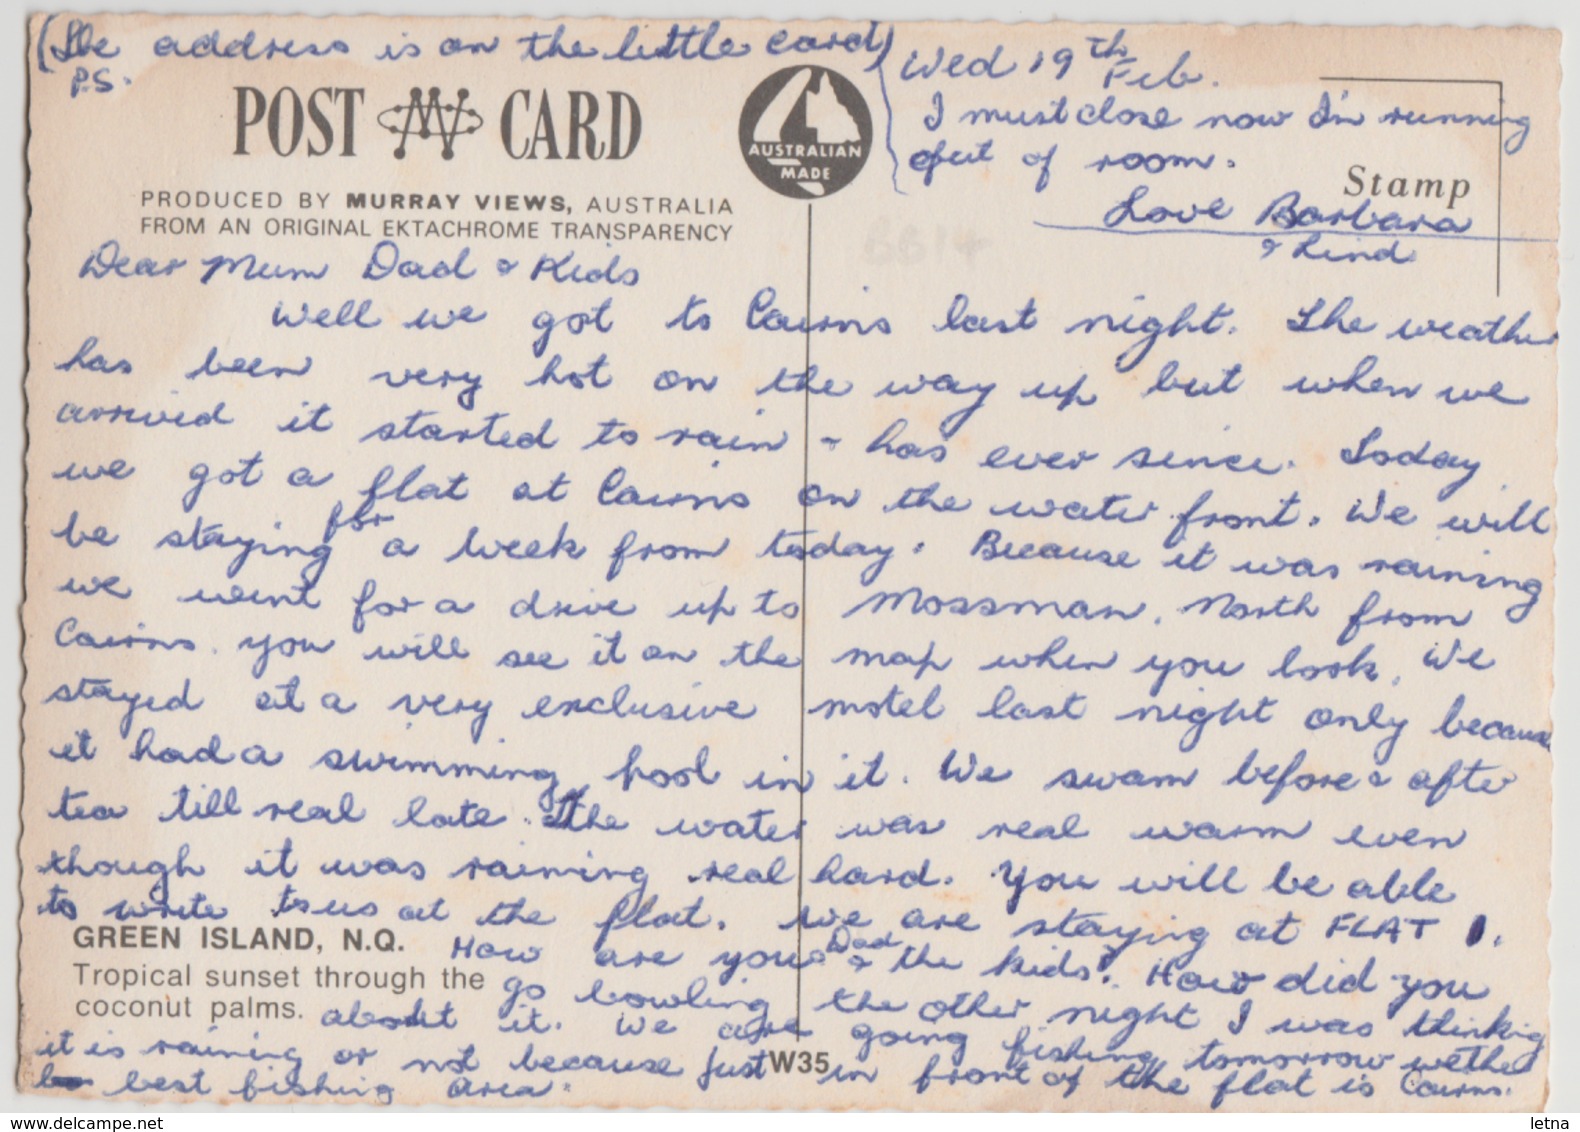 (The address is on the little card)
P.S.
Wed 19th Feb.
I must close now I'm running
out of room.
Love Barbara
& Lind
POST CARD
AUSTRALIAN
MADE
Stamp
PRODUCED BY MURRAY VIEWS, AUSTRALIA
FROM AN ORIGINAL EKTACHROME TRANSPARENCY
BB14
Dear Mum Dad & Kids
Well we got to Cairns last night. The weather
has been very hot on the way up but when we
arrived it started to rain & has ever since. Today
we got a flat at Cairns on the water front. We will
be staying for a week from today. Because it was raining
we went for a drive up to Mossman. North from
Cairns. You will see it on the map when you look. We
stayed at a very exclusive motel last night only because
it had a swimming pool in it. We swam before & after
tea till real late. The water was real warm even
though it was raining real hard. You will be able
to write to us at the flat. We are staying at FLAT 1.
GREEN ISLAND, N.Q.
Tropical sunset through the
coconut palms.
How are you Dad & the kids? How did you
go bowling the other night I was thinking
about it. We are going fishing tomorrow wether
it is raining or not because just in front of the flat is Cairns.
best fishing area.
W35
www.delcampe.net
letna